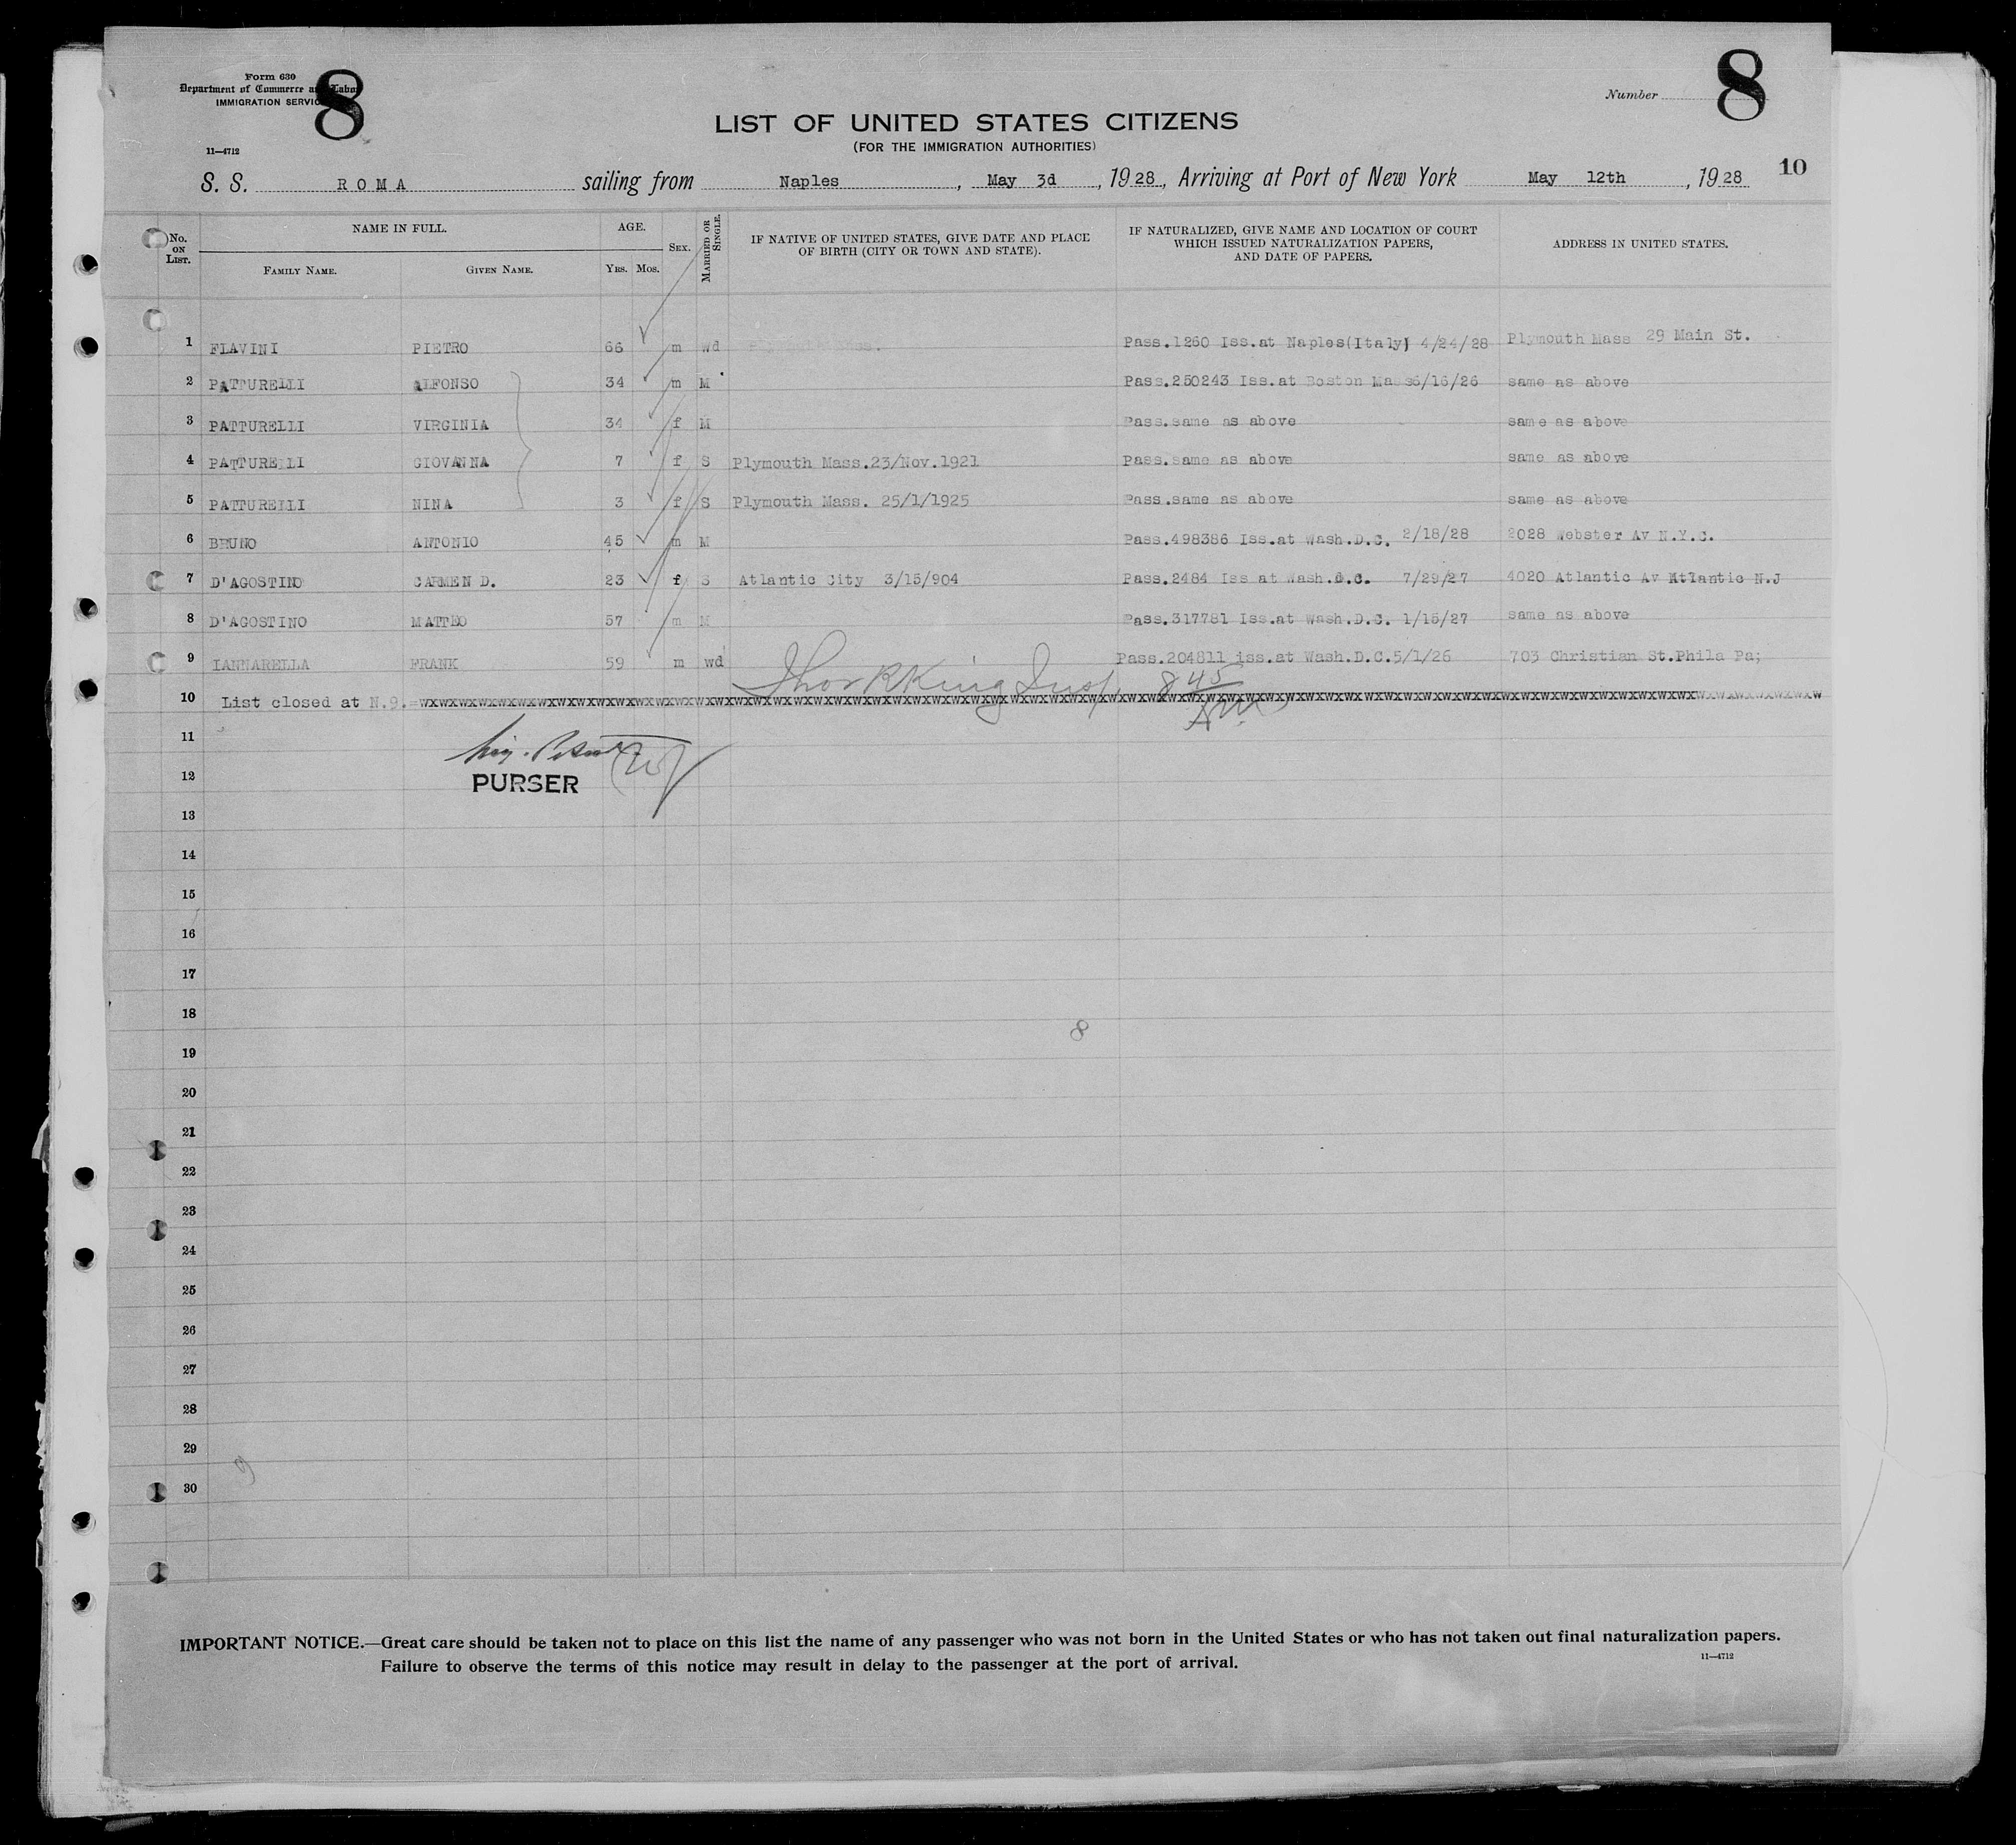 8
8
Form 630
Department of Commerce and Labor
IMMIGRATION SERVICE
Number
LIST OF UNITED STATES CITIZENS
(FOR THE IMMIGRATION AUTHORITIES)
11—4712
10
S. S. ROMA sailing from Naples, May 3d, 1928, Arriving at Port of New York May 12th, 1928
No. ON LIST. NAME IN FULL. FAMILY NAME. GIVEN NAME. AGE. YRS. MOS. SEX. MARRIED OR SINGLE. IF NATIVE OF UNITED STATES, GIVE DATE AND PLACE OF BIRTH (CITY OR TOWN AND STATE). IF NATURALIZED, GIVE NAME AND LOCATION OF COURT WHICH ISSUED NATURALIZATION PAPERS, AND DATE OF PAPERS. ADDRESS IN UNITED STATES.
1 FLAVINI PIETRO 66 m wd Pass.1260 Iss.at Naples(Italy) 4/24/28 Plymouth Mass 29 Main St.
2 PATTURELLI ALFONSO 34 m M Pass.250243 Iss.at Boston Mass6/16/26 same as above
3 PATTURELLI VIRGINIA 34 f M Pass.same as above same as above
4 PATTURELLI GIOVANNA 7 f S Plymouth Mass.23/Nov.1921 Pass.same as above same as above
5 PATTURELLI NINA 3 f S Plymouth Mass. 25/1/1925 Pass.same as above same as above
6 BRUNO ANTONIO 45 m M Pass.498386 Iss.at Wash.D.C. 2/18/28 2028 Webster Av N.Y.C.
7 D'AGOSTINO CARMEN D. 23 f S Atlantic City 3/15/904 Pass.2484 Iss at Wash.d.c. 7/29/27 4020 Atlantic Av Atlantic N.J
8 D'AGOSTINO MATTEO 57 m M Pass.317781 Iss.at Wash.D.C. 1/15/27 same as above
9 IANNARELLA FRANK 59 m wd Pass.204811 iss.at Wash.D.C.5/1/26 703 Christian St.Phila Pa;
Thos R King Insp 8 45 AM
10 List closed at N.9.
11
12 PURSER
13
14
15
16
17
18
8
19
20
21
22
23
24
25
26
27
28
29
9
30
IMPORTANT NOTICE.—Great care should be taken not to place on this list the name of any passenger who was not born in the United States or who has not taken out final naturalization papers.
Failure to observe the terms of this notice may result in delay to the passenger at the port of arrival.
11—4712